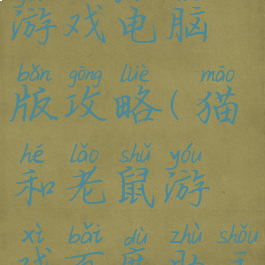 游戏电脑
bǎn gōng lüè māo
版攻略(猫
hé lǎo shǔ yóu
和老鼠游
xì bǎi dù zhù shǒu
戏百度助手